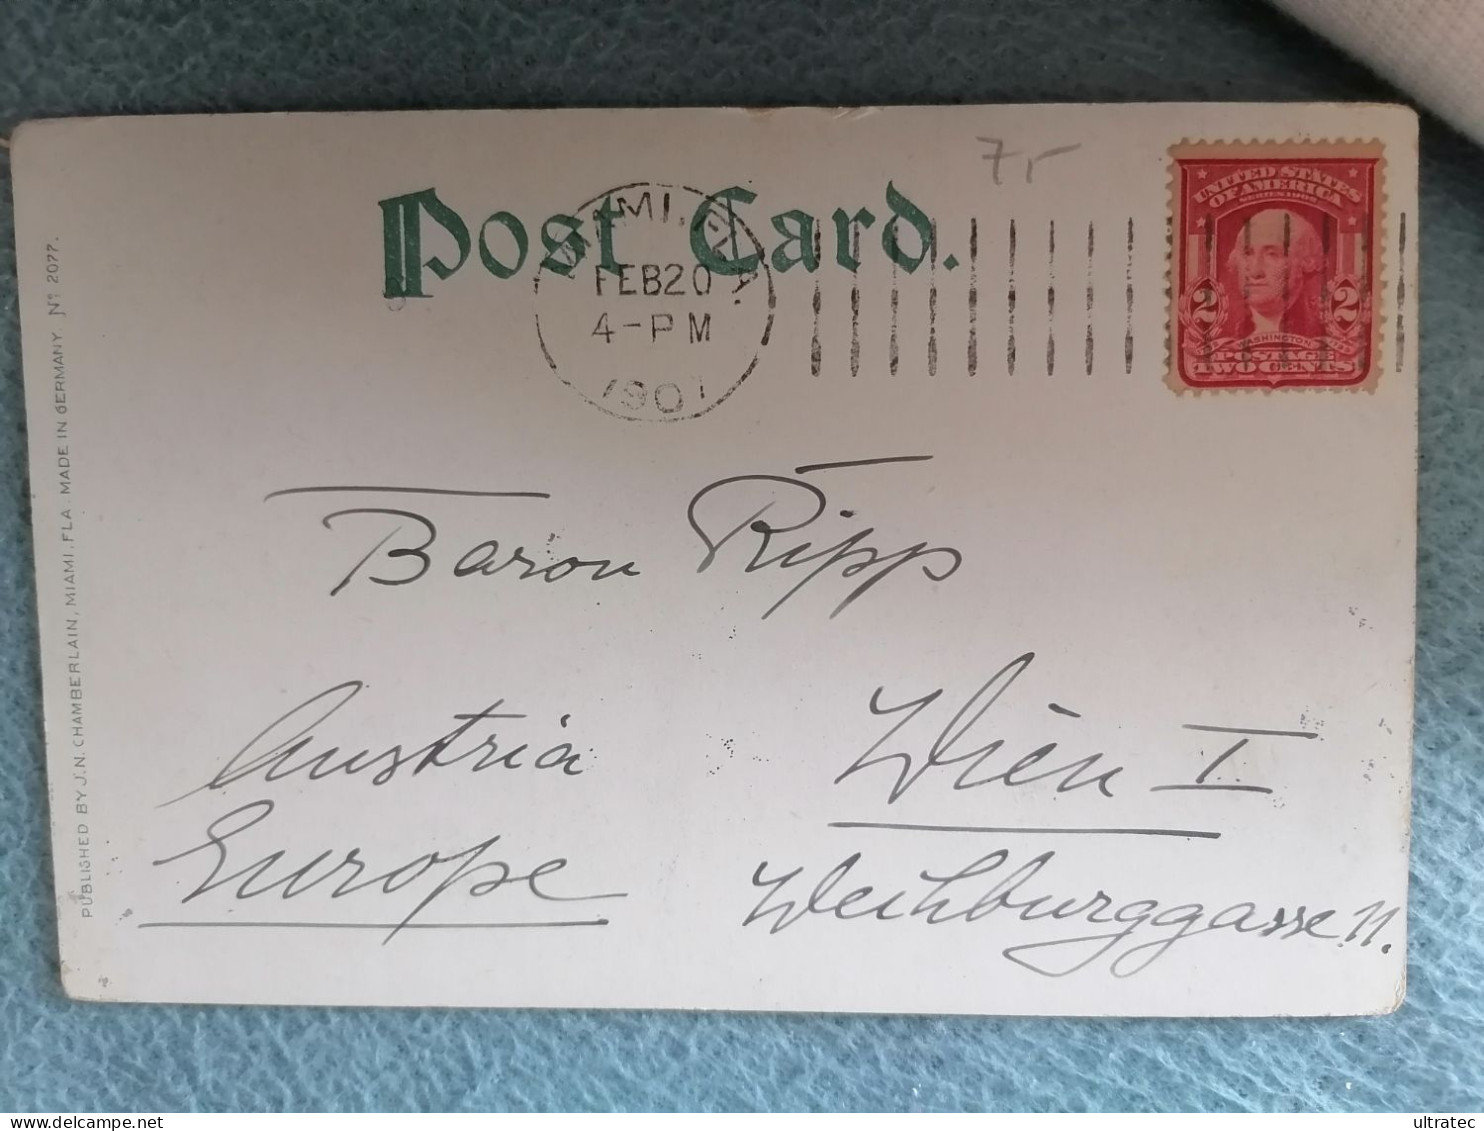 7r
Post Card.
MIAMI, FLA.
FEB 20
4-PM
1907
UNITED STATES
OF AMERICA
SERIES 1902
2 2
WASHINGTON
POSTAGE
TWO CENTS
Baron Ripp
Austria
Europe
Wien I
Weihburggasse 11.
PUBLISHED BY J.N. CHAMBERLAIN, MIAMI, FLA. MADE IN GERMANY Nº 2077.
ultratec